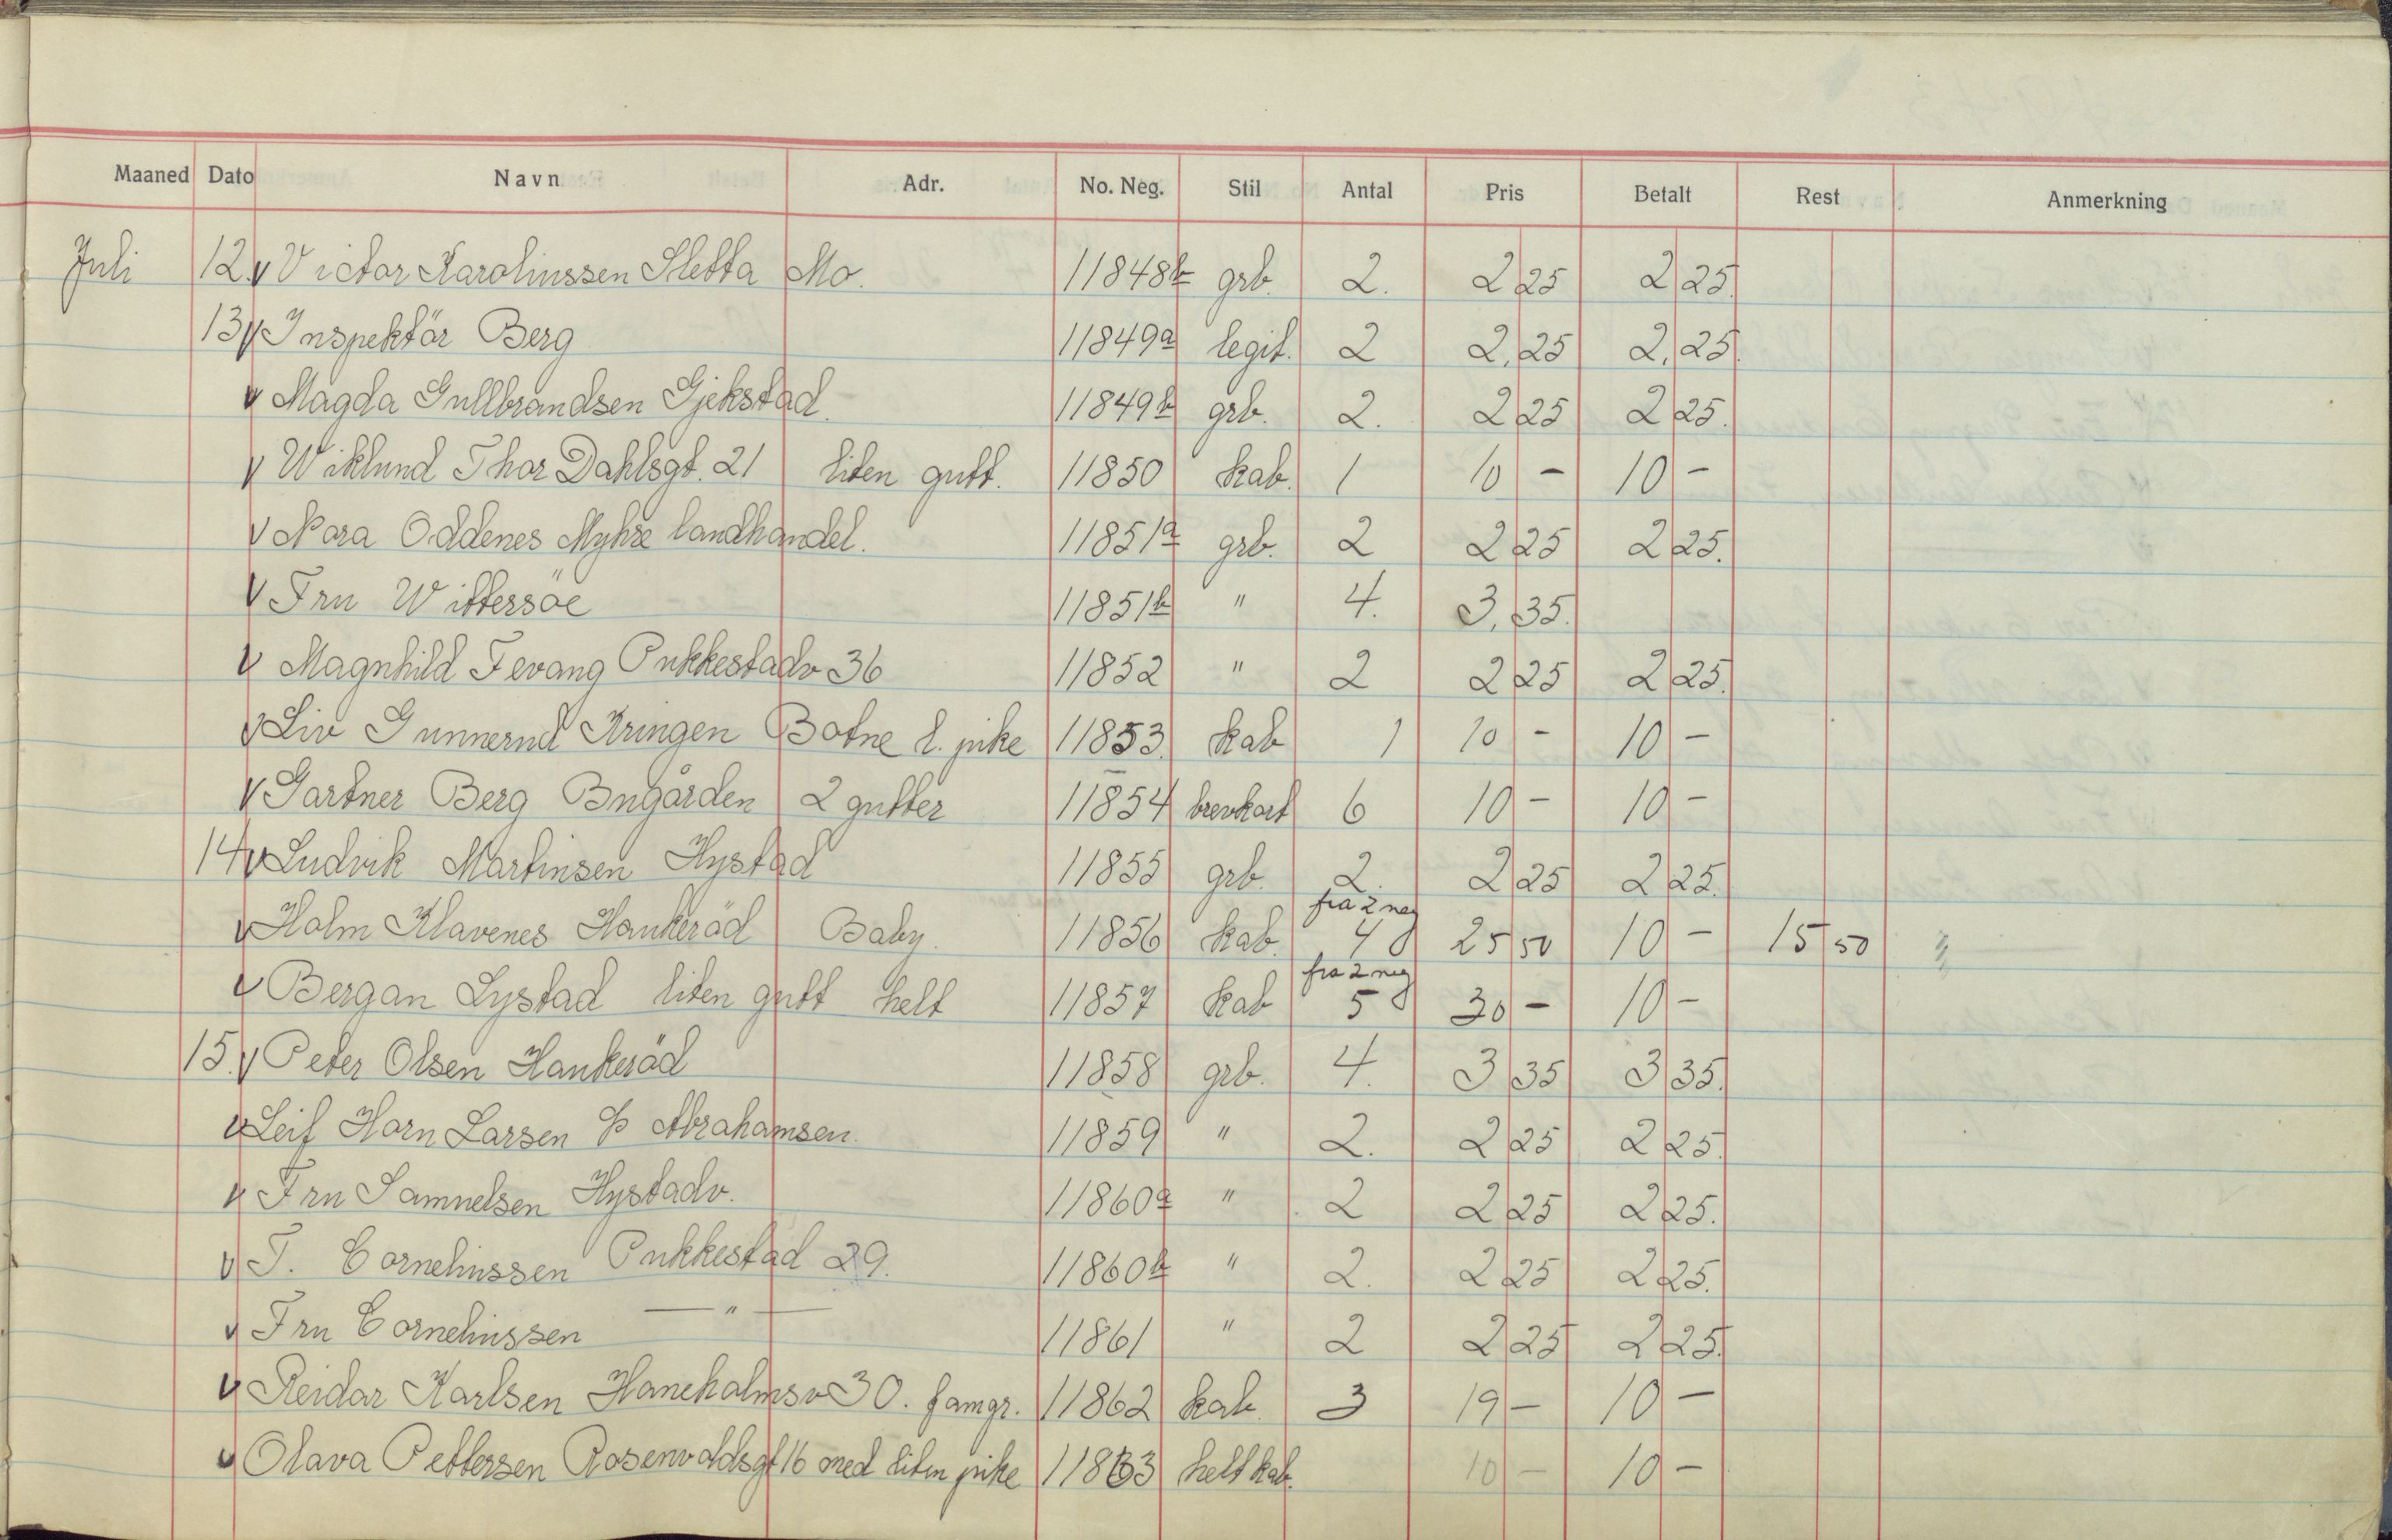 Maaned Dato Navn Adr. No. Neg. Stil Antal Pris Betalt Rest Anmerkning
Juli 12. v Victor Karolinssen Sletta Mo. 11848b grb. 2. 2 25 2 25.
13 v Inspektör Berg 11849a legit. 2 2,25 2,25.
v Magda Gullbrandsen Gjekstad. 11849b grb. 2. 2 25 2 25.
v Wiklund Thor Dahlsgt. 21 liten gutt. 11850 kab. 1 10 - 10 -
v Nora Oddenes Myhre landhandel. 11851a grb. 2 2 25 2 25.
v Fru Wittersöe 11851b " 4. 3,35.
v Magnhild Fevang Pukkestadv 36 11852 " 2 2 25 2 25.
v Liv Gunnerud Kringen Botne l. pike 11853. kab 1 10 - 10 -
v Gartner Berg Bugården 2 gutter 11854 brevkort 6 10 - 10 -
14 v Ludvik Martinsen Hystad 11855 grb. 2. 2 25 2 25.
v Holm Klavenes Haukeröd Baby. 11856 kab. fra 2 neg 4 25 50 10 - 15 50
v Bergan Lystad liten gutt helt 11857 kab fra 2 neg 5 30 - 10 -
15. v Peter Olsen Haukeröd 11858 grb. 4. 3 35 3 35.
v Leif Horn Larsen Abrahamsen. 11859 " 2. 2 25 2 25.
v Fru Samuelsen Hystadv. 11860a " 2 2 25 2 25.
v T. Cornelinssen Pukkestad 29. 11860b " 2. 2 25 2 25.
v Fru Cornelinssen — " — 11861 " 2 2 25 2 25.
v Reidar Karlsen Haneholmsv 30. famgr. 11862 kab. 3 19 - 10 -
v Olava Pettersen Rosenvoldsgt 16 med liten pike 11863 helt kab. 10 - 10 -